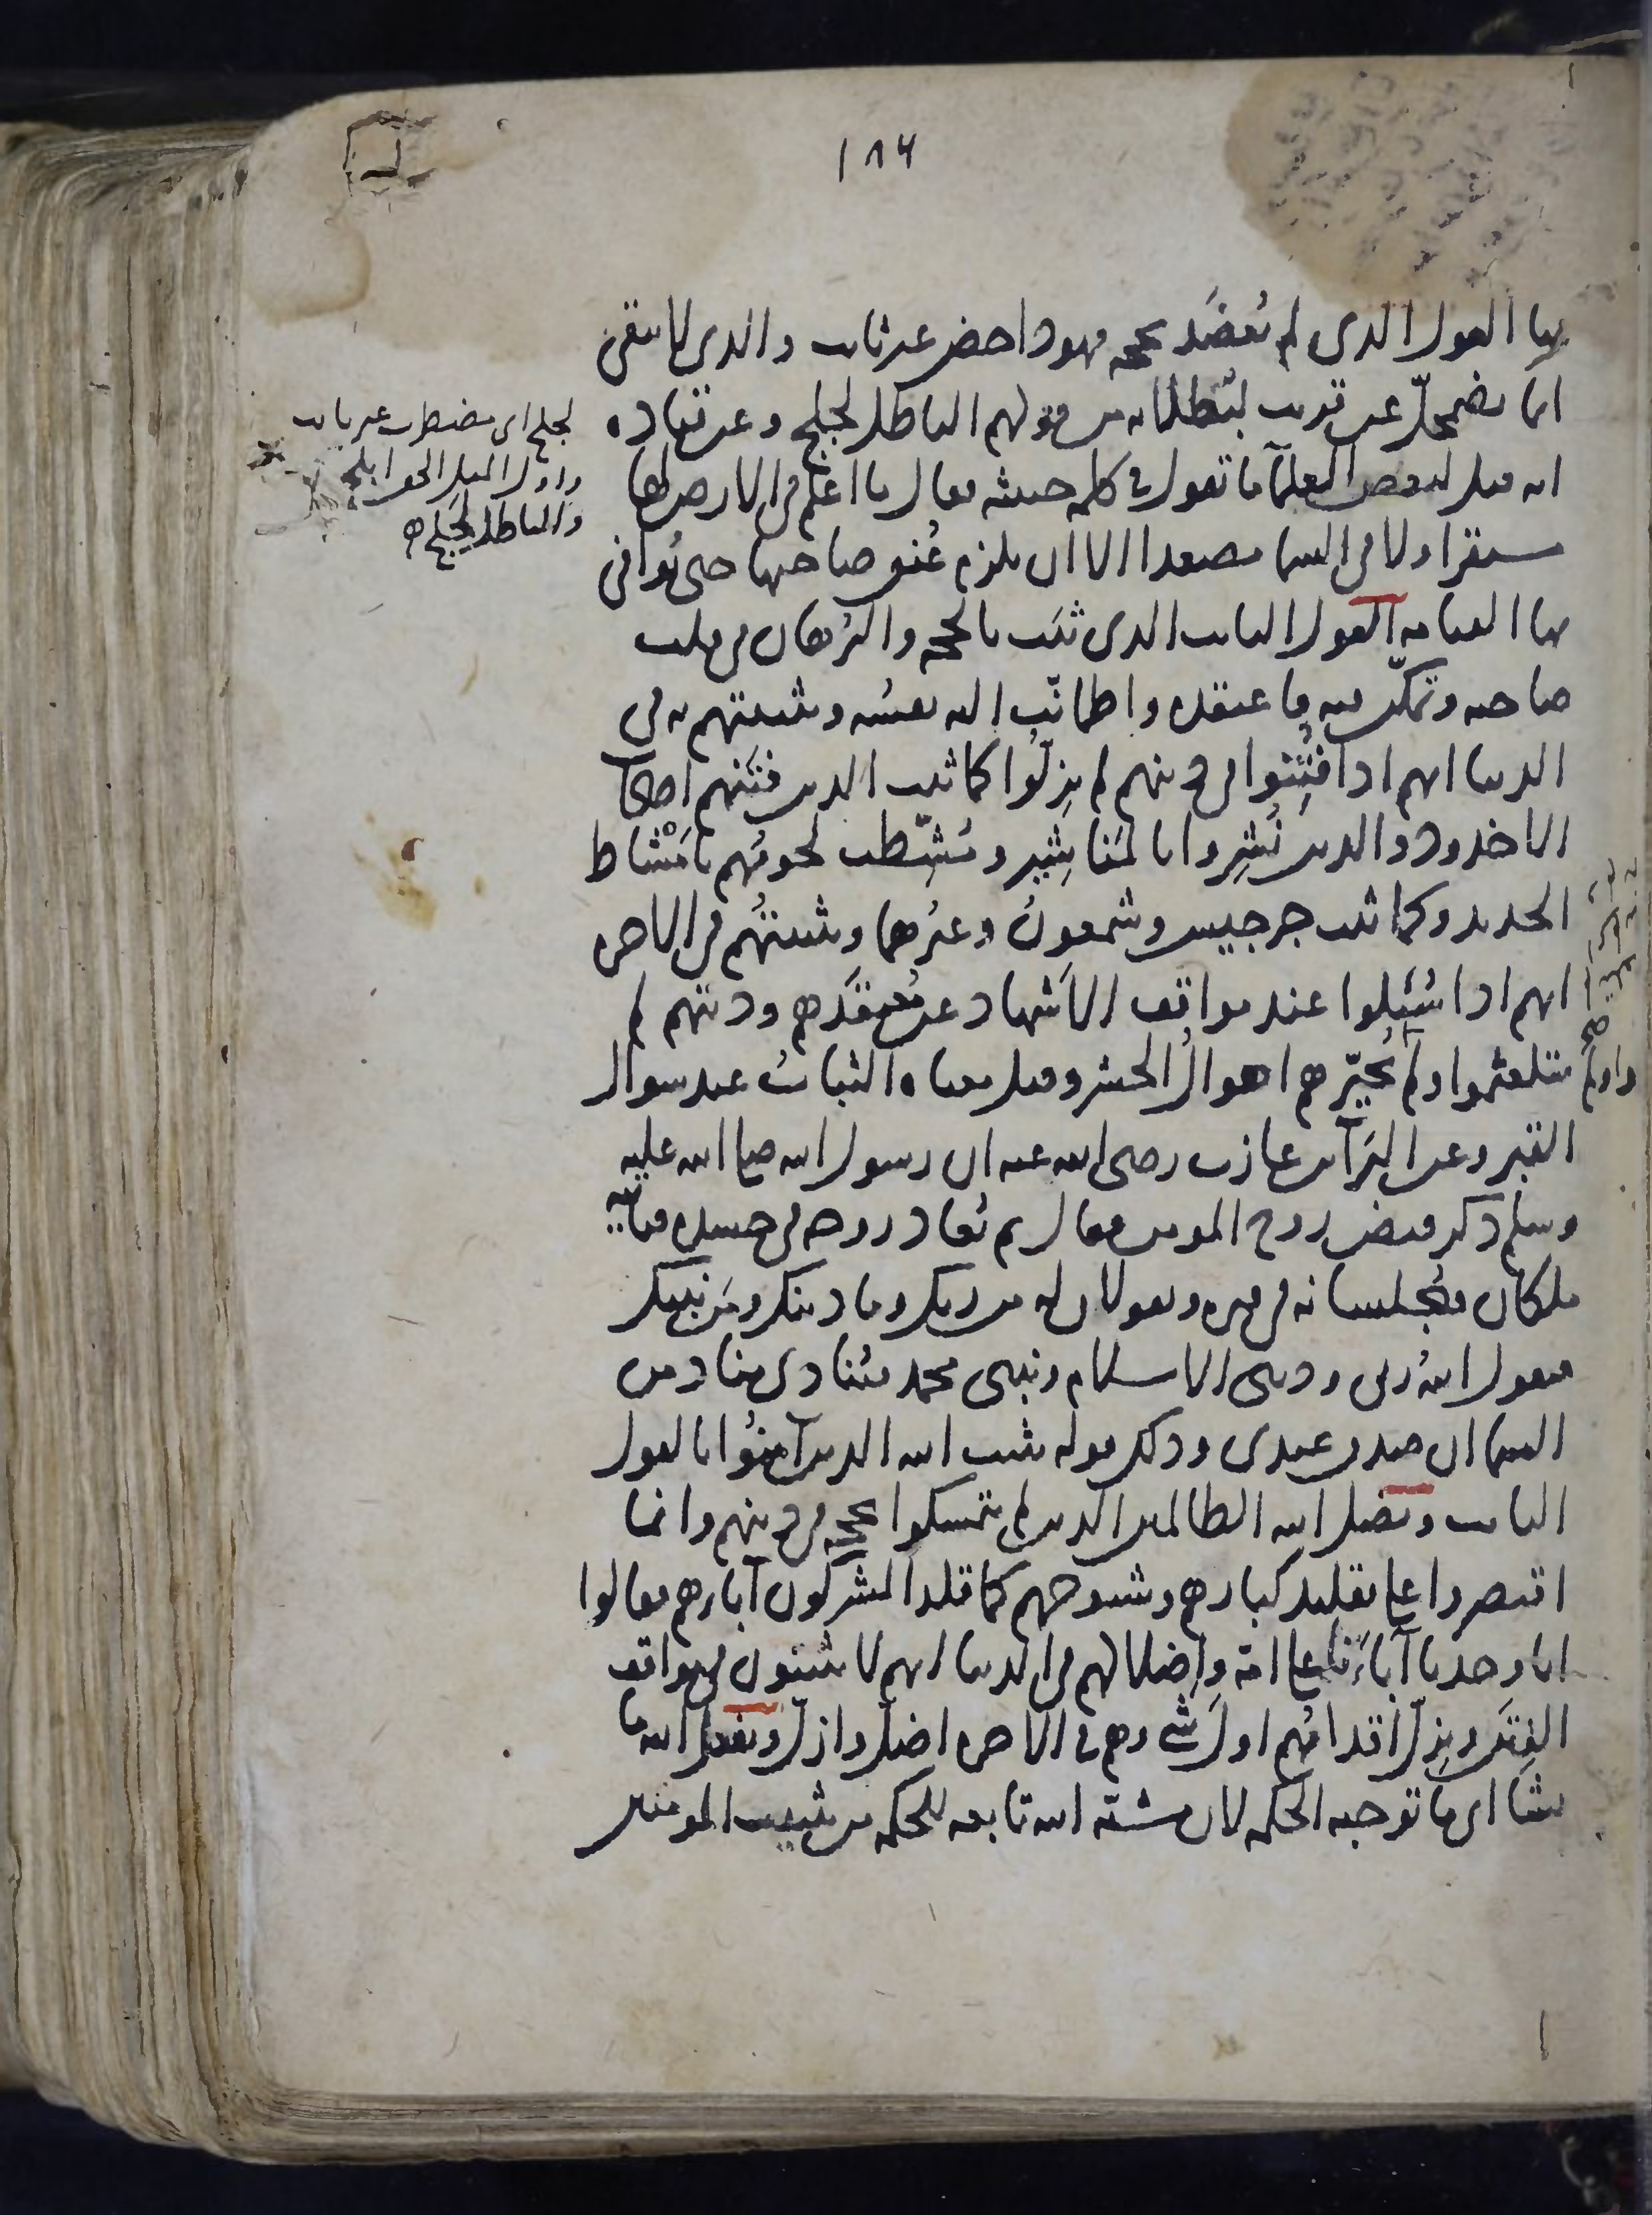 ١٨٤
بها القول الذى لم يُعضَد بحجه فهو داحض غير ثابت والذى لا يبقى
انما يضمحلّ عن قريب لبُطلانه من قولهم الباطل لجلج وعن قتاده
انه قيل لبعض العلمآ ما تقول فى كلمه خبيثه فقال ما اعلم فى الارض لها
مستقرا ولا فى السما مصعدا الا ان تلزم عُنق صاحبها حتى يُوافى
بها القيامه القول الثابت الذى ثبَت بالحجه والبُرهان فى قلب
صاحبه وتمكّن فيه فاعتقده واطمانّت اليه نفسُه وتثبيتهم به فى
الدنيا انهم اذا فُتِنوا فى دينهم لم يزِلّوا كما ثبت الذين فتنهم اصحاب
الاخدود والذين نُشِروا بالمَناشِير ومُشِّطت لحومُهم بامْشاط
الحديد وكما ثبت جرجيس وشمعونُ وغيرُهما وتثبيتُهم فى الاخره
انهم اذا سُئِلوا عند مواقف الاَشهاد عن مُعتقَدهم ودينهم لم
يتلعثموا ولم تُحيّرهم اهوالُ الحشر وقيل معناه الثباتُ عند سوال
القبر وعن البَرآ بن عازب رضى الله عنه ان رسول الله صلى الله عليه
وسلم ذكر قبض روح المومن فقال ثم تُعاد روحه فى جسده فياتيه
ملكان فيُجلسانه فى قبره ويقولان له من ربك وما دينك ومَن نبيك
فيقول اللهُ ربى ودينى الاسلام ونبيى محمد فيُنادى مناد من
السما ان صدق عبدى وذلك قوله يثبت الله الذين آمنُوا بالقول
الثابت ويضل الله الظالمين الذين لم يتمسكوا بحجه فى دينهم وانما
اقتصروا على تقليد كبارهم وشيوخهم كما قلد المشركون آباءهم فقالوا
انا وجدنا آباءَنا على امّه وإضلالهم فى الدنيا انهم لا يثبتون فى مواقف
الفِتَن وتزِلّ اقدامُهم اولَ شى وهم فى الاخره اضلّ وازلّ ويفعل الله ما
يشا اى ما توجبه الحكمه لان مشيّه الله تابعه للحكمه من تثبيت المومنين
لجلج اى مضطرب غير ثابت
واول المثل الحق ابلج
والباطل لجلج